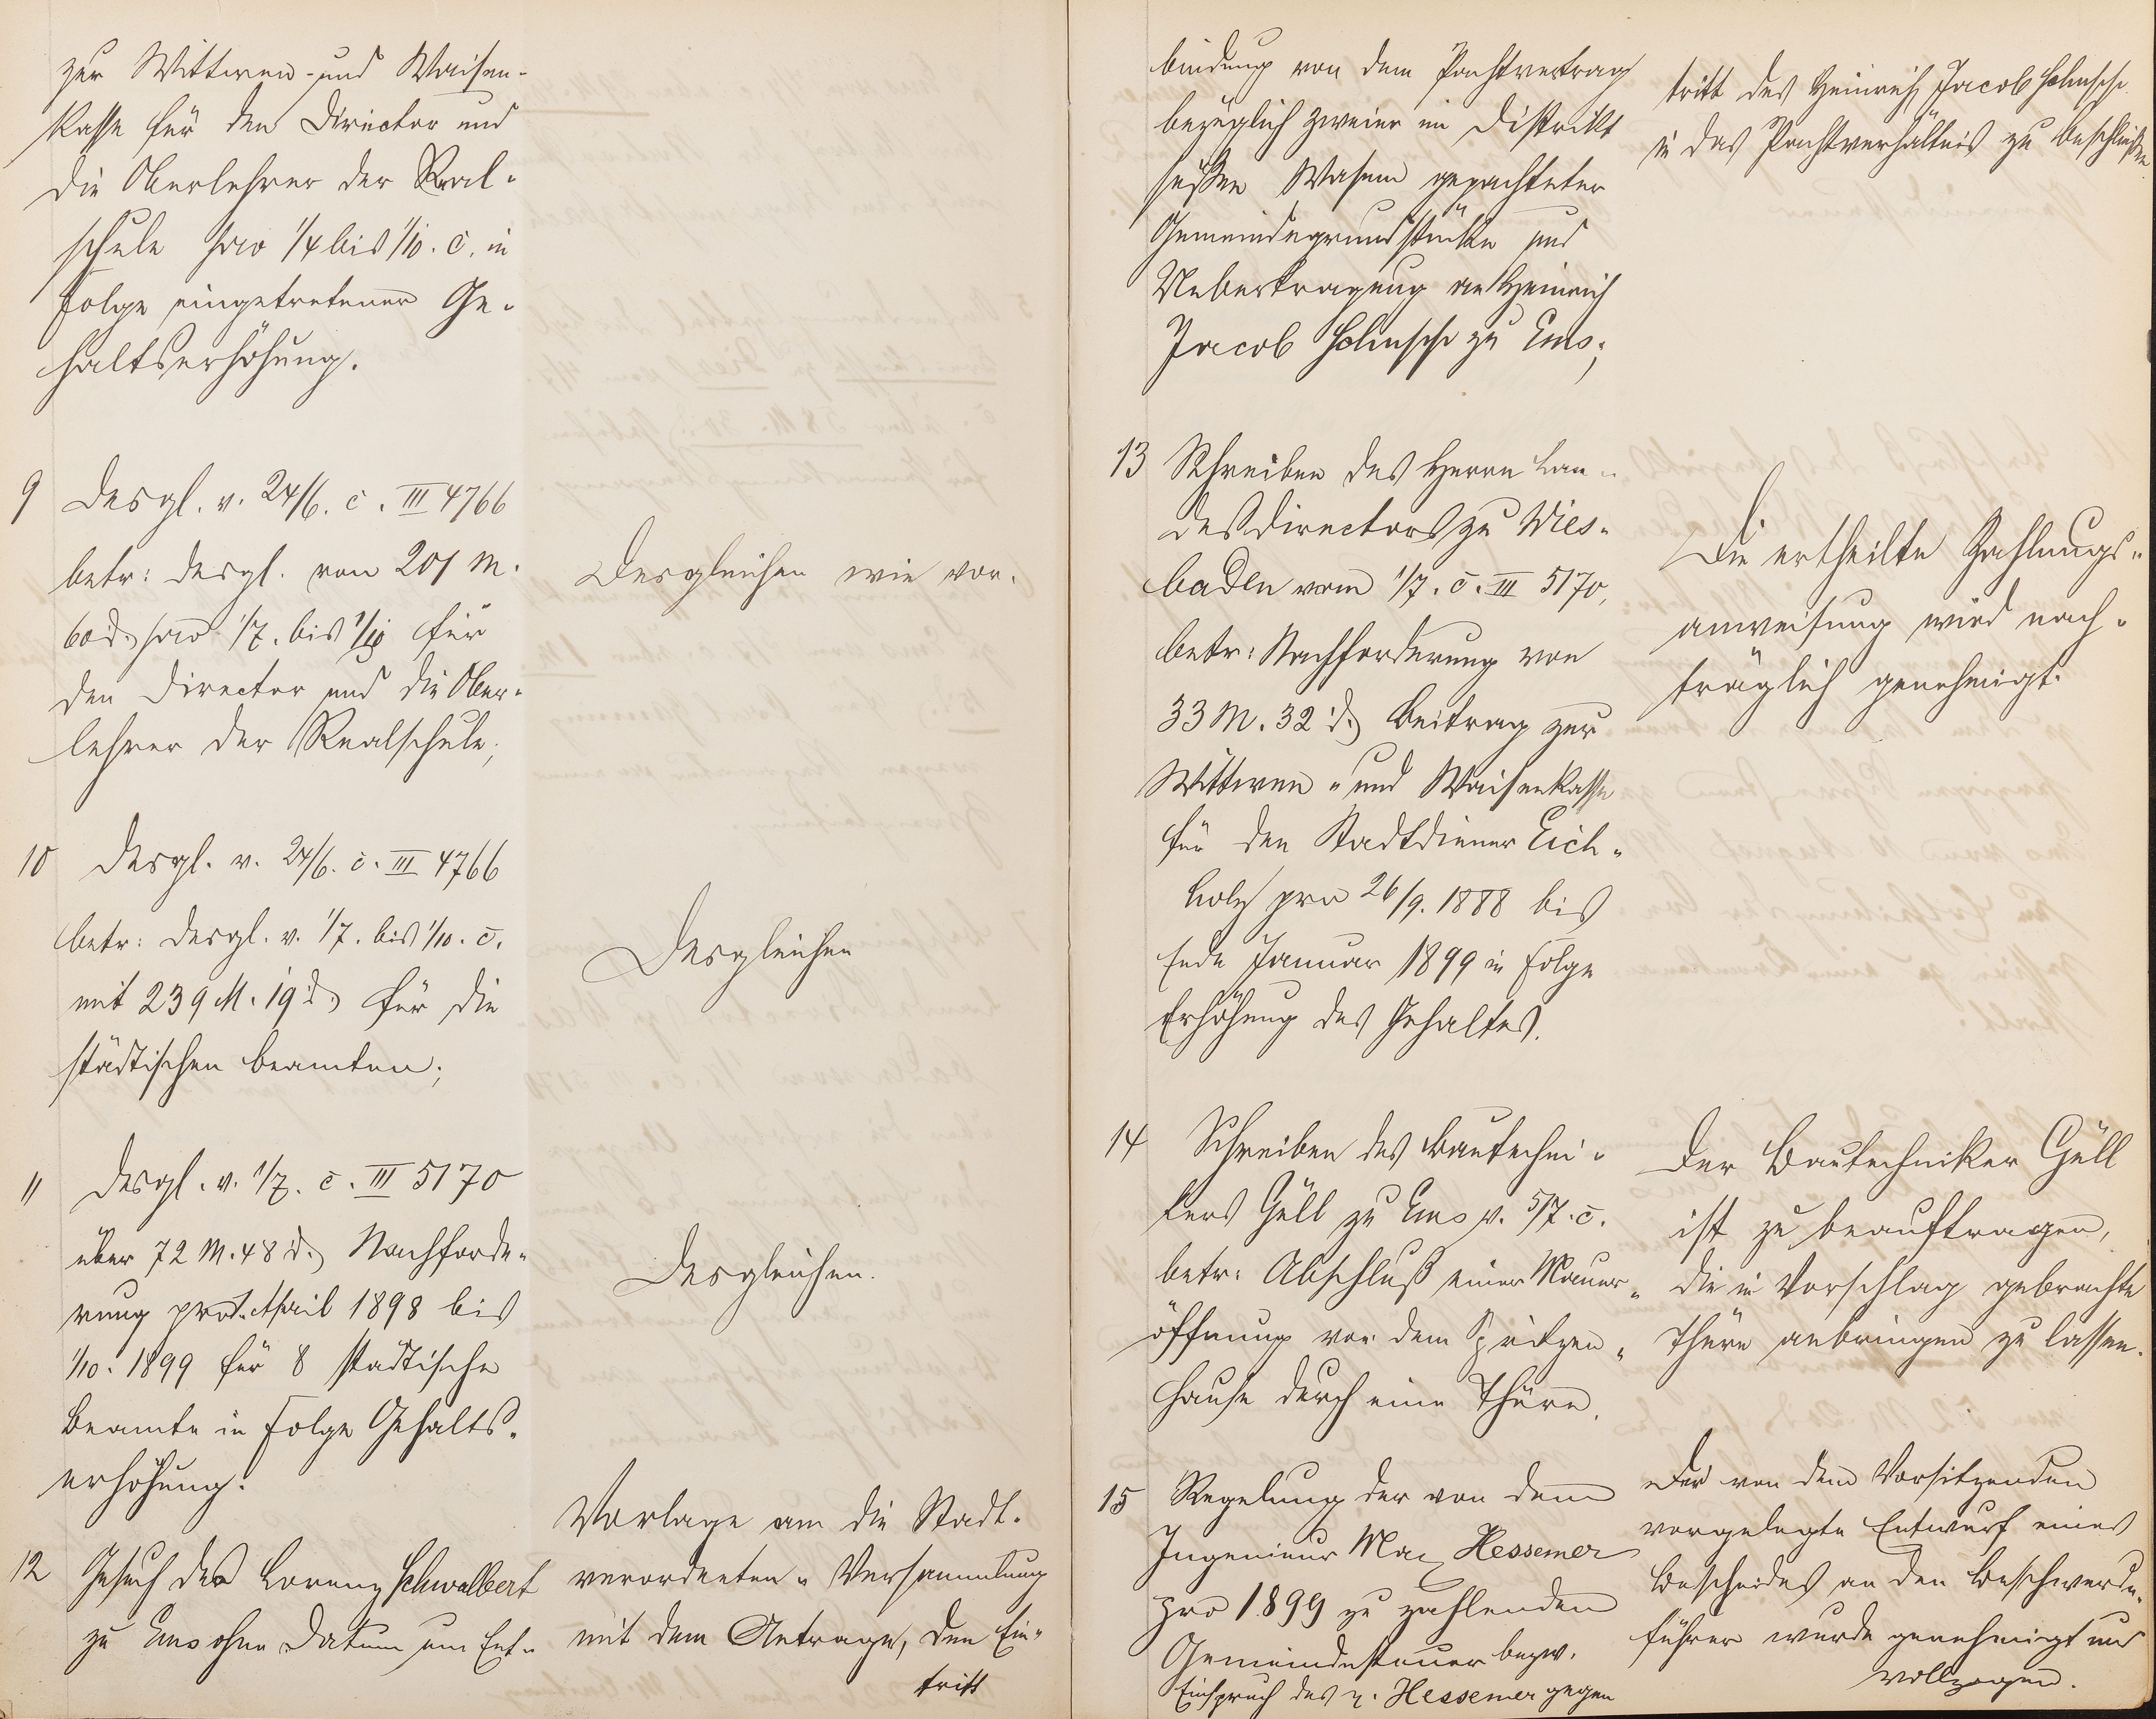 zur Wittwen- und Waisen-
kasse für den Director und
die Oberlehrer der Real-
schule pro 1/4 bis 1/10. c. in
Folge eingetretener Ge-
haltserhöhung.
9 Desgl. v. 24/6. c. III 4766
betr: desgl. von 201 M.
60 d. pro 1/7. bis 1/10 für
den Director und die Ober-
lehrer der Realschule;
Desgleichen wie vor.
10 Desgl. v. 24/6. c. III 4766
betr: desgl. v. 1/7. bis 1/10. c.
mit 239 M. 19 d. für die
städtischen Beamten;
Desgleichen
11 Desgl. v. 1/7. c. III 5170
über 72 M. 48 d. Nachforde-
rung pro 1. April 1898 bis
1/10. 1899 für 8 städtische
Beamte in Folge Gehalts-
erhöhung.
Desgleichen.
12 Gesuch des Lorenz Schwalbert
zu Ems ohne Datum um Ent-
Vorlage an die Stadt-
verordneten-Versammlung
mit dem Antrage, den Ein-
tritt
bindung von dem Pachtvertrag
bezüglich zweier im Distrikt
süßen Wasem gepachteter
Gemeindegrundstücke und
Uebertragung an Heinrich
Jacob zu Ems;
tritt des Heinrich Jacob
in das Pachtverhältnis zu beschließen
13 Schreiben des Herrn Lan-
desdirectors zu Wies-
baden vom 1/7. c. III 5170,
betr: Nachforderung von
33 M. 32 d. Beitrag zur
Wittwen- und Waisenkasse
für den Stadtdiener Eich-
holz pro 26/9. 1888 bis
Ende Januar 1899 in Folge
Erhöhung des Gehaltes.
Die ertheilte Zahlungs-
anweisung wird nach-
träglich genehmigt.
14 Schreiben des Bautechni-
kers Güll zu Ems v. 5/7. c.
betr: Abschluß einer Mauer-
öffnung vor dem Spritzen-
hause durch eine Thüre.
Der Bautechniker Güll
ist zu beauftragen,
die in Vorschlag gebrachte
Thüre anbringen zu lassen.
15 Regelung der von dem
Ingenieur Max Hessemer
pro 1899 zu zahlenden
Gemeindesteuer bezw.
Einspruch des p. Hessemer gegen
Der von dem Vorsitzenden
vorgelegte Entwurf eines
Bescheides an den Beschwerde-
führer wurde genehmigt und
vollzogen.